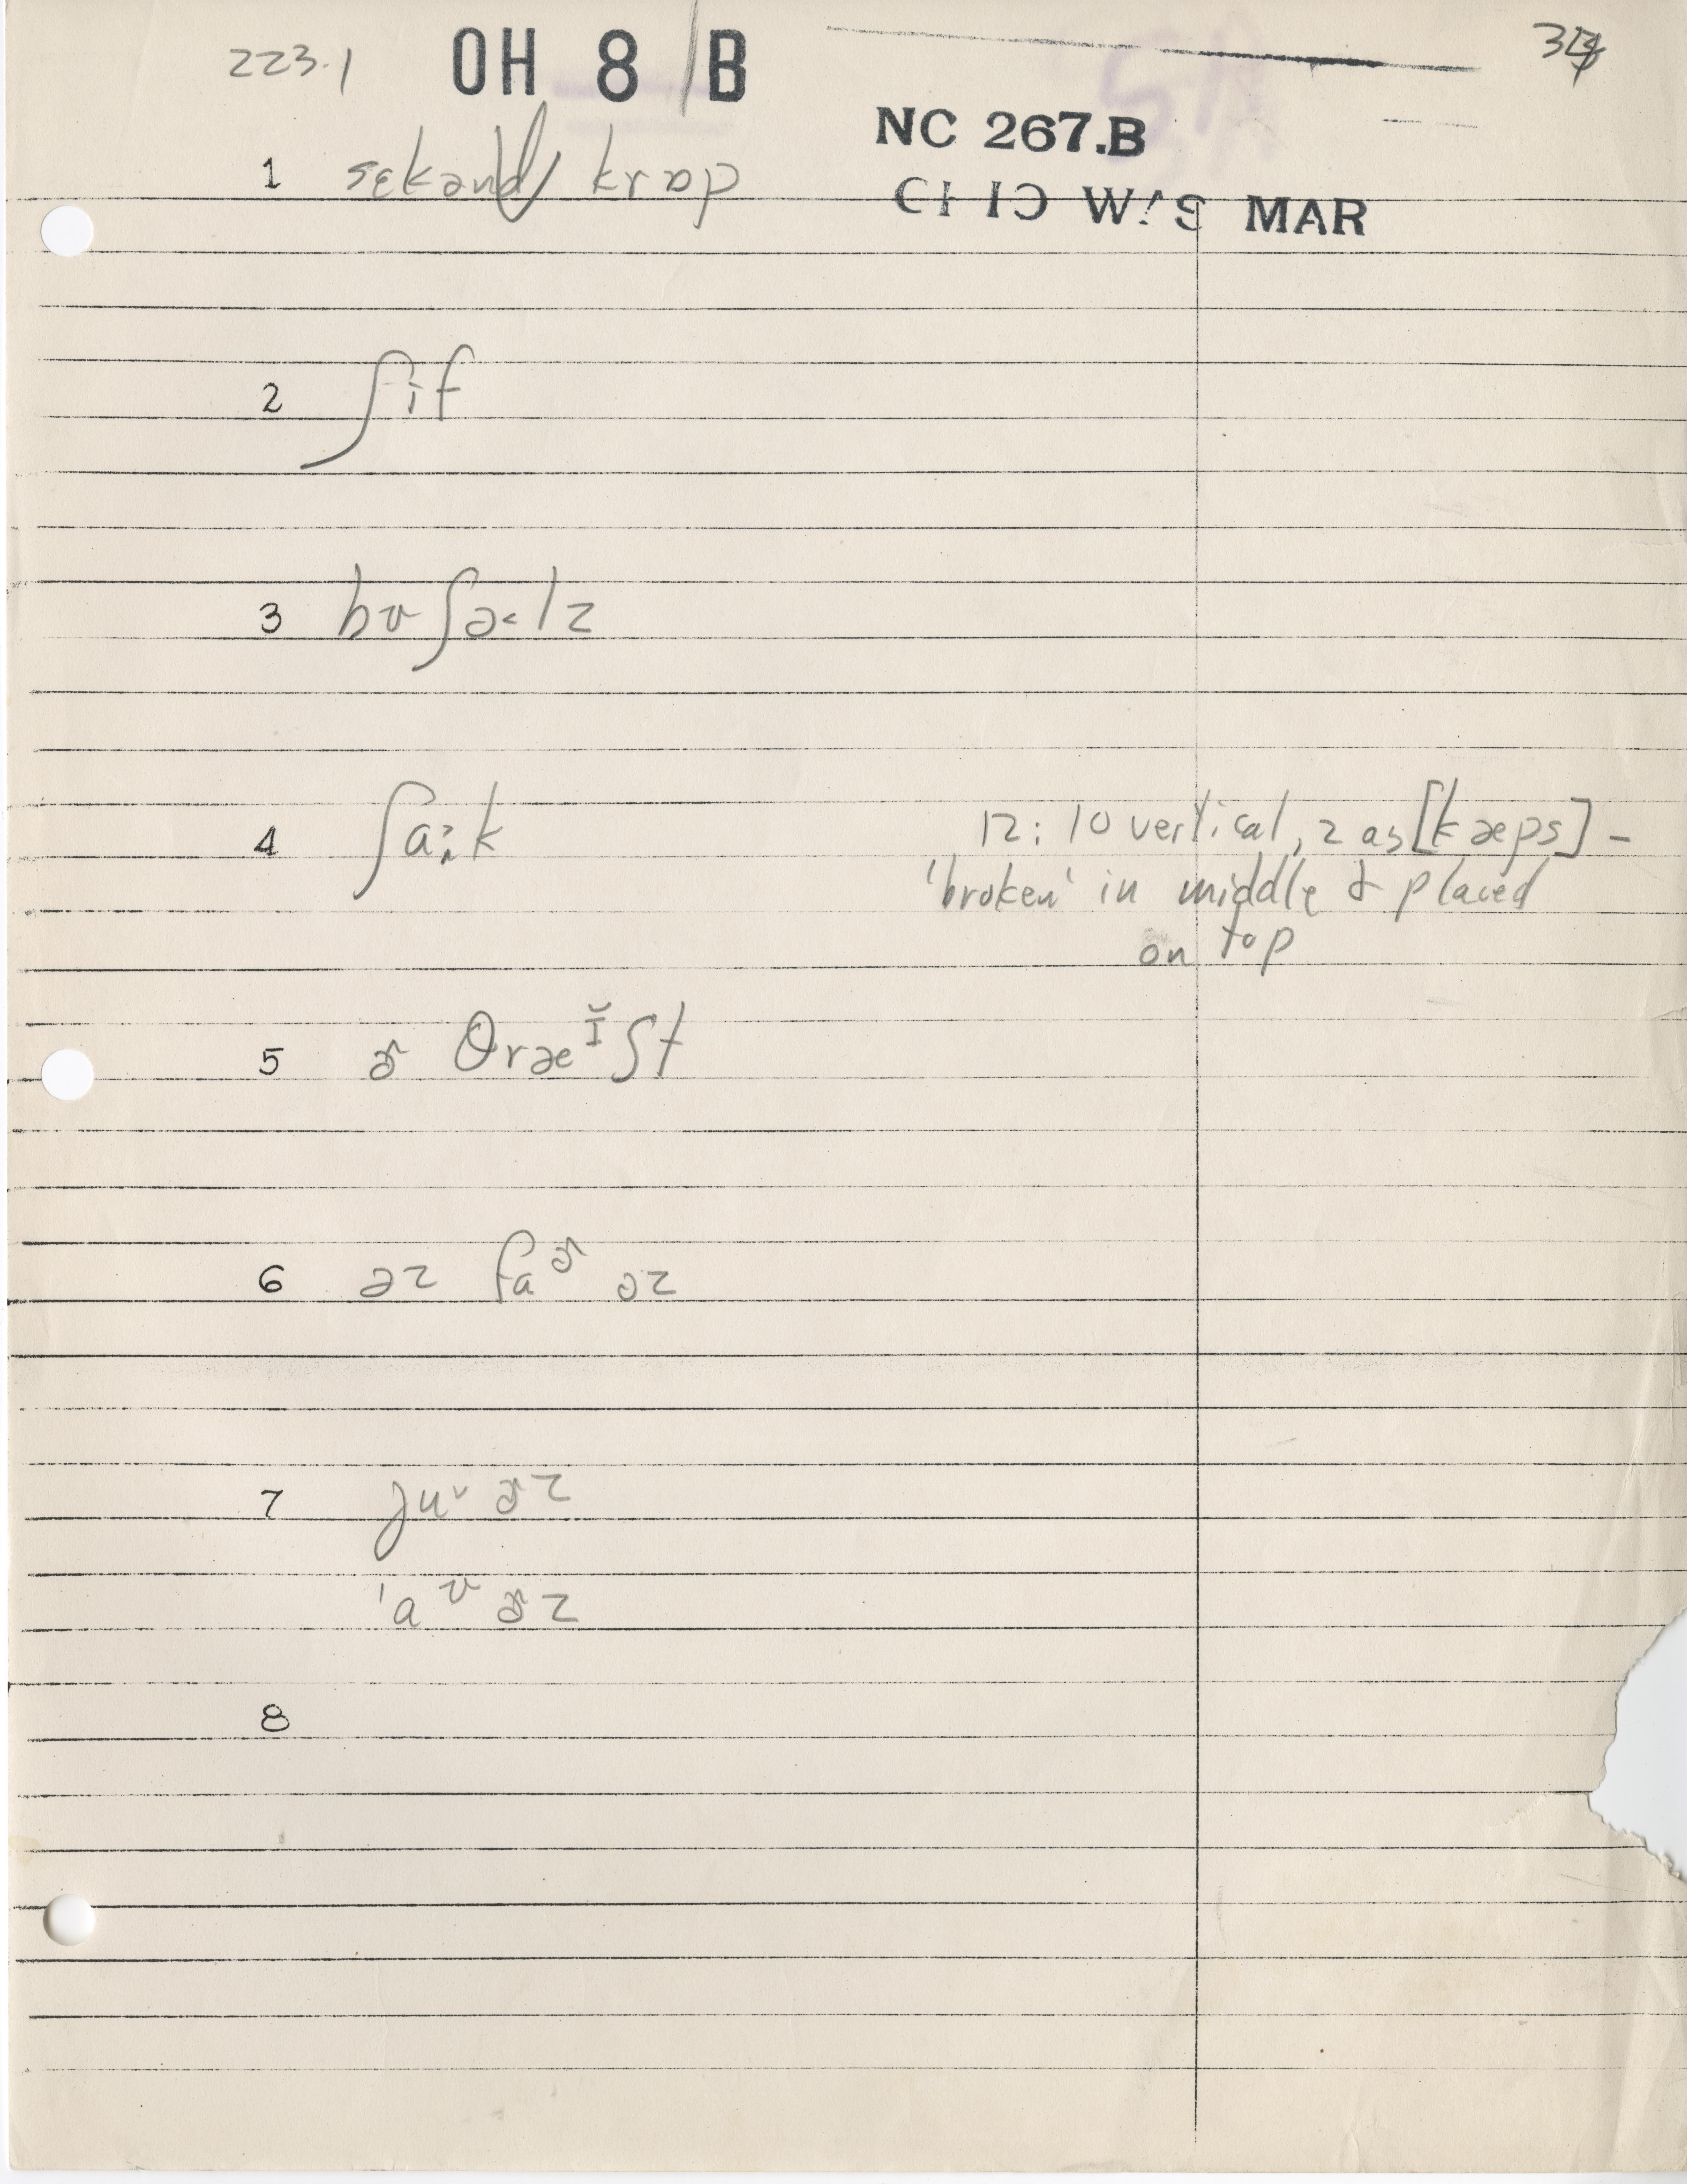 223.1 OH 8 B
NC 267.B
1 sɛkənd krɒp
MAR
2 ʃif
3 bʊʃəlz
4 ʃa·k 12: 10 vertical, 2 as [kæps] –
'broken' in middle & placed
on top
5 ɚ θræɪ̆ʃt
6 əz faɚ əz
7 juᵛ ɚz
'aʊ ɚz
8